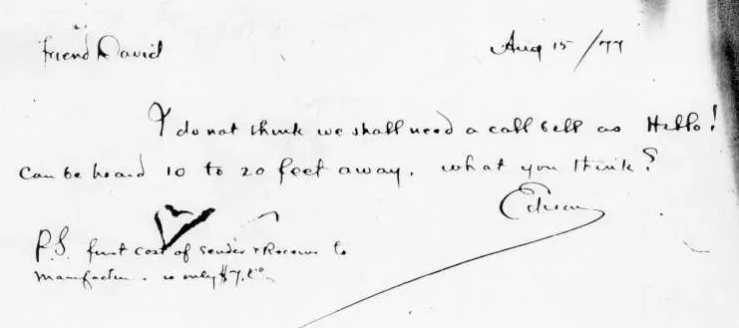 Friend David Aug 15/77
I do not think we shall need a call bell as Hello!
Can be heard 10 to 20 feet away. what you think?
Edison
P.S. first cost of sender & Receiver to
manufacture is only $7.00